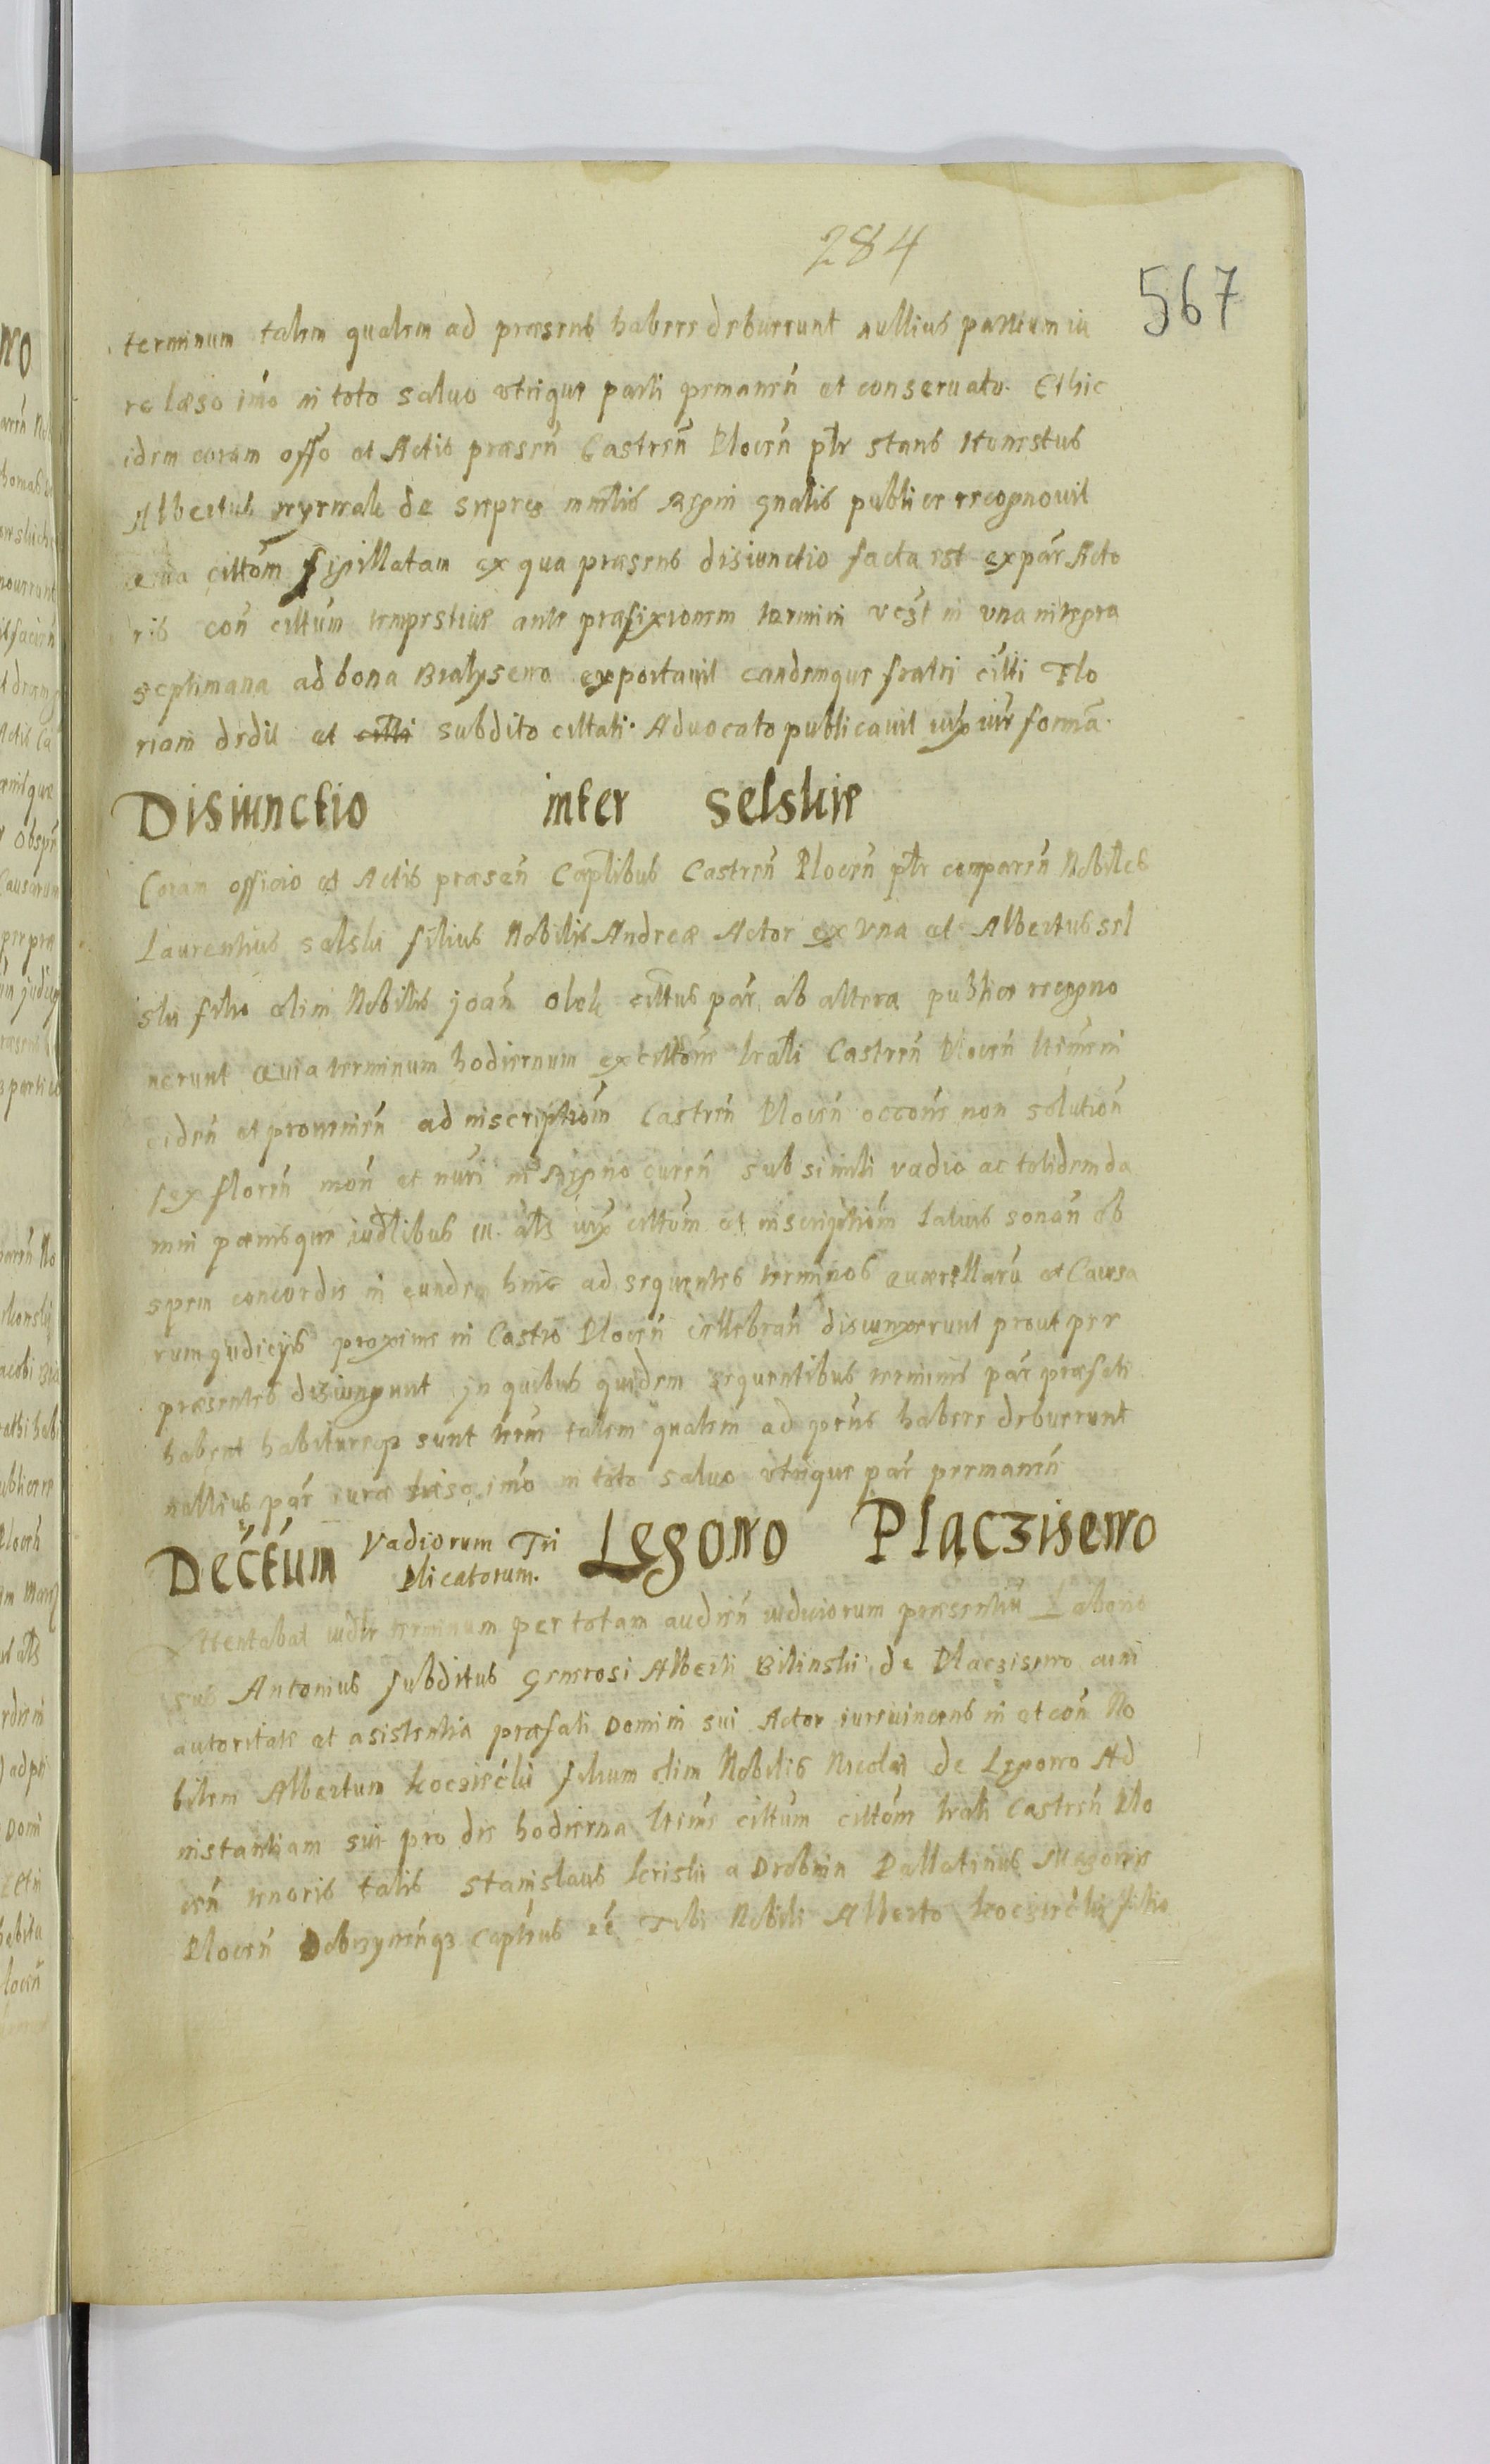 284
567
terminum talem qualem ad præsens habere debuerunt nullius partium iu
re læso imo in toto saluo utrique parti permanen et conseruato. Et hic
idem coram offo et Actis præsen Castren Plocen plr stans Honestus
Albertus de Sierpcz mnlis Regni gnalis publice recognouit
quia cittom sigillatam ex qua præsens disiunctio facta est ex par Acto
ris con cittum tempestiue ante præfixionem termini vczt in una integra
septimana ad bona exportauit eandemque fratri citti Flo
riam dedit et citti subdito cittati Aduocato publicauit iux iur forma.
Disiunctio inter Selskie
Coram officio et Actis præsen Caplibus Castren Plocen plr comparen Nobiles
Laurentius Selski filius Nobilis Andreæ Actor ex una et Albertus Sel
ski filio olim Nobilis Joan cittus par ab altera publice recogno
uerunt quia terminum hodiernum ex cittone trali Castren Plocen
ciden et prouenien ad inscriptiom Castren Plocen occone non solution
sex floren mon et nuri in Regno curen sub simili vadio ac totidem da
mni pænisque iudlibus iux cittom et inscriptiom latius sonan ob
spem concordie in eundem hinc ad sequentes terminos quærellaru et Causa
rum judicijs proxime in Castro Plocen cellebran disiunxerunt prout per
præsentes disiungunt jn quibus quidem sequentibus terminis par præfati
habent habiturique sunt trm talem qualem ad pns habere debuerunt
nullius par iure læso imo in toto saluo utrique par permanen
Dectum Vadiorum Tri
plicatorum. Legowo Placziszewo
Attentabat iudlr terminum per totam audien iudiciorum præsentiu Laborio
sus Antonius subditus Generosi Alberti Bilinski de Placzisewo cum
autoritate et asistentia præfati Domini sui Actor iureuincens in et con No
bilem Albertum filium olim Nobilis Nicolai de Legowo Ad
instantiam sui pro die hodierna cittum cittom trali Castren Plo
cen tenoris talis Stanislaus Kriski a Drobnin Pallatinus Mazouie
Plocen Dobrzynenqz Capneus ec Tibi Nobili Alberto filio